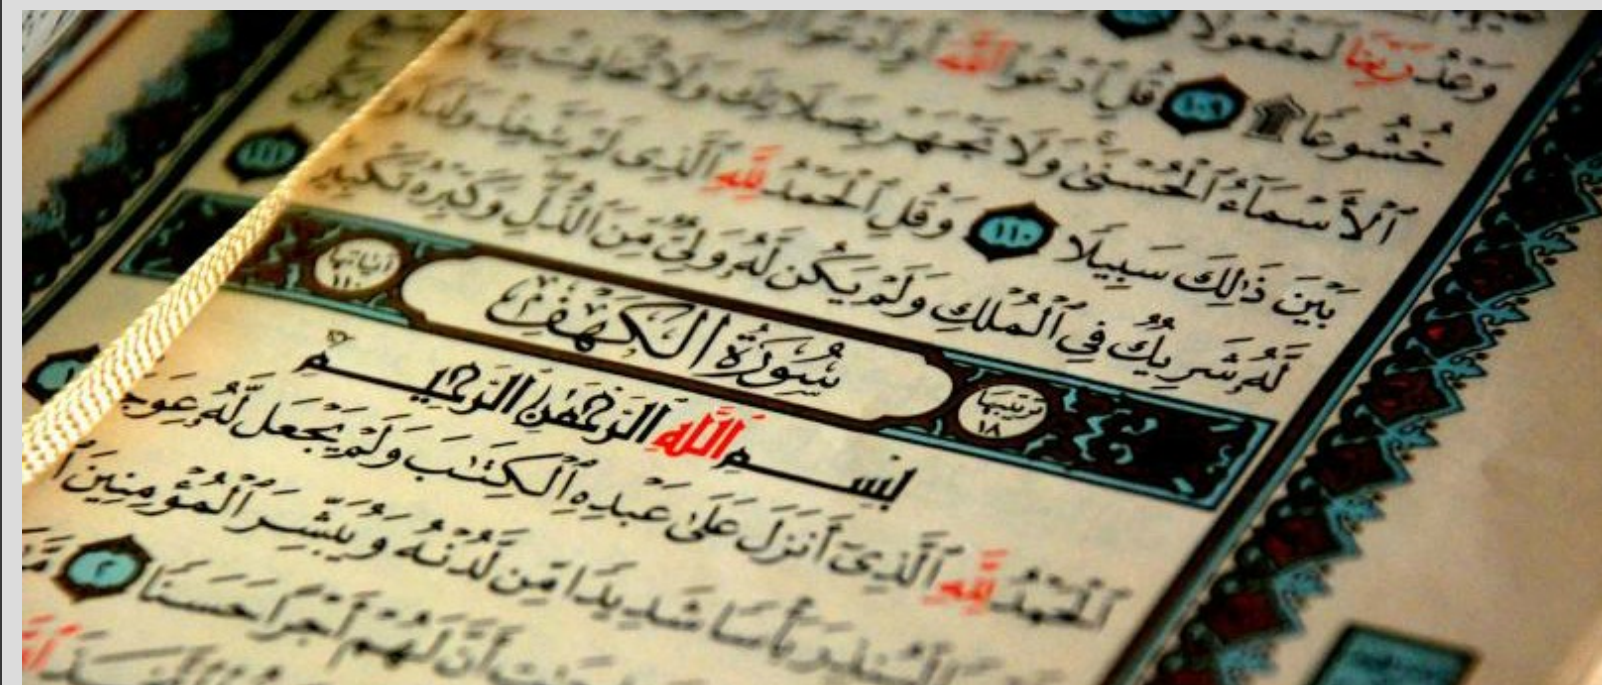 وَعْدُ رَبِّنَا لَمَفْعُولًا
خُشُوعًا ۩ ١٠٩ قُلِ ادْعُوا اللَّهَ أَوِ ادْعُوا
الْأَسْمَاءُ الْحُسْنَىٰ وَلَا تَجْهَرْ بِصَلَاتِكَ وَلَا تُخَافِتْ بِهَا
بَيْنَ ذَٰلِكَ سَبِيلًا ١١٠ وَقُلِ الْحَمْدُ لِلَّهِ الَّذِي لَمْ يَتَّخِذْ وَلَدًا وَلَمْ يَكُن
لَّهُ شَرِيكٌ فِي الْمُلْكِ وَلَمْ يَكُن لَّهُ وَلِيٌّ مِّنَ الذُّلِّ وَكَبِّرْهُ تَكْبِيرًا ١١١
ترتيبها ١٨ سُورَةُ الْكَهْفِ آياتها ١١٠
بِسْمِ اللَّهِ الرَّحْمَٰنِ الرَّحِيمِ
الْحَمْدُ لِلَّهِ الَّذِي أَنزَلَ عَلَىٰ عَبْدِهِ الْكِتَابَ وَلَمْ يَجْعَل لَّهُ عِوَجَا ١
لِّيُنذِرَ بَأْسًا شَدِيدًا مِّن لَّدُنْهُ وَيُبَشِّرَ الْمُؤْمِنِينَ
أَنَّ لَهُمْ أَجْرًا حَسَنًا ٢